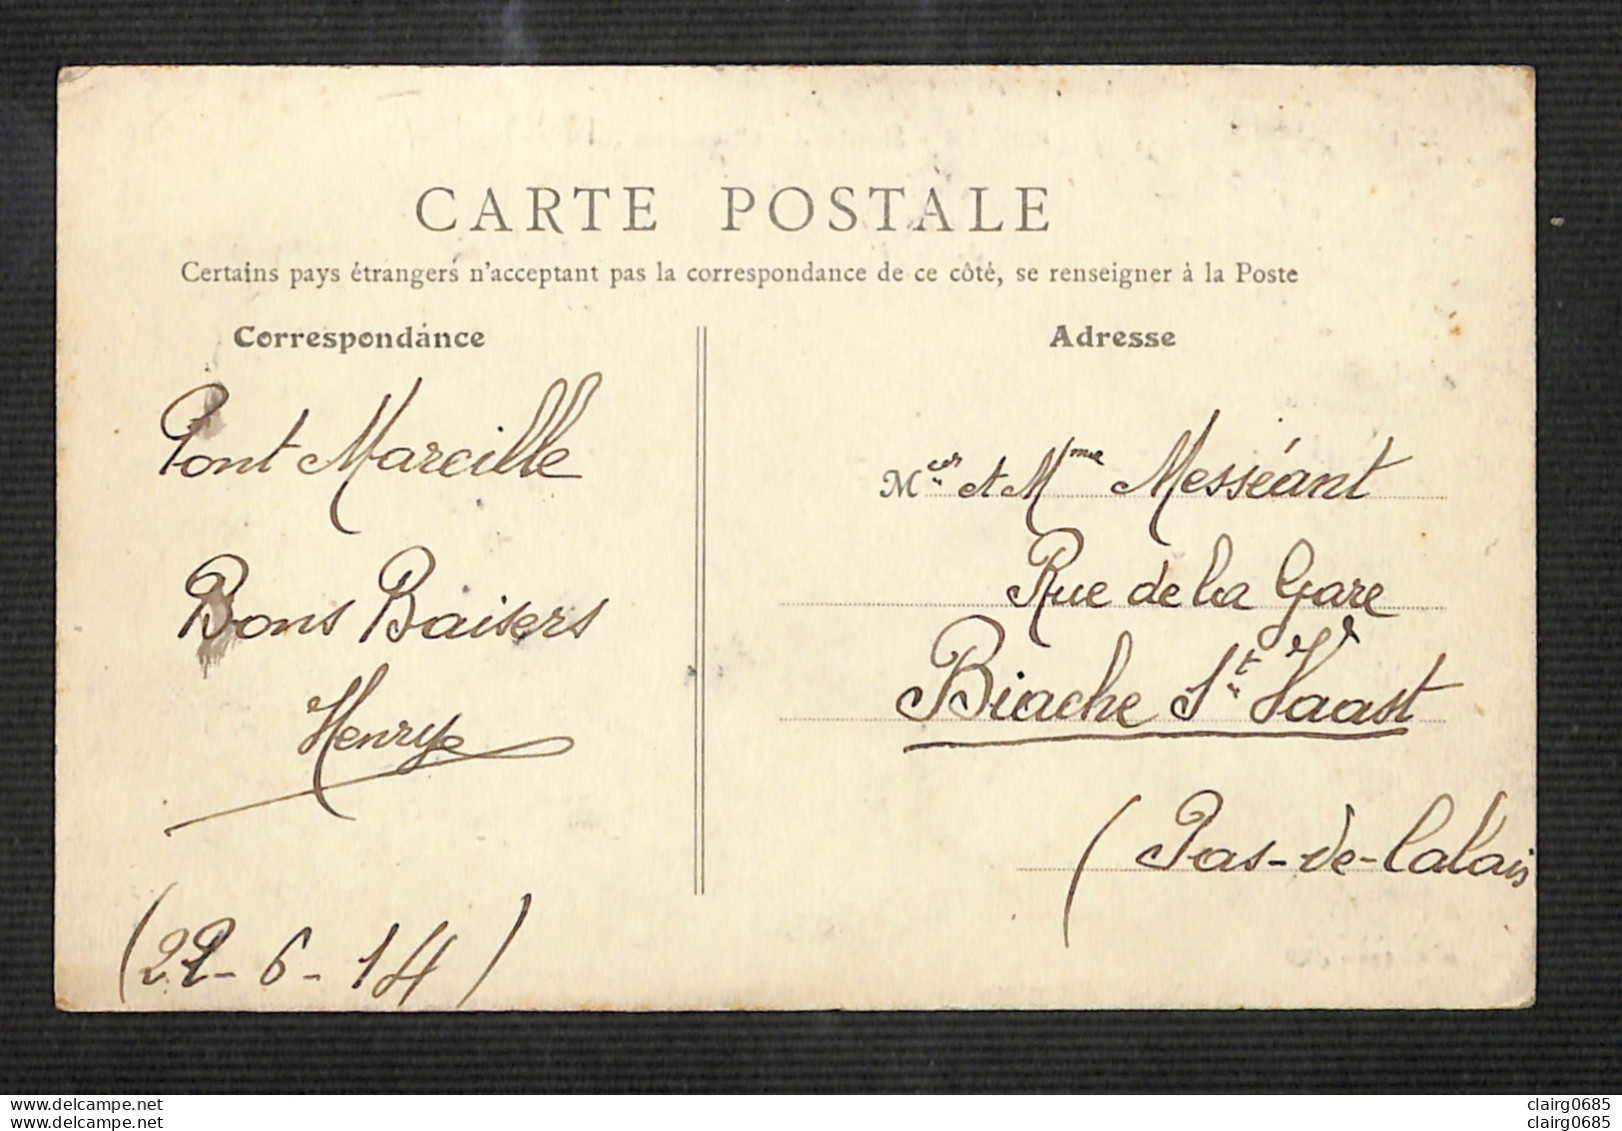 CARTE POSTALE
Certains pays étrangers n'acceptant pas la correspondance de ce côté, se renseigner à la Poste
Correspondance
Pont Marcille
Bons Baisers
Henry
(22-6-14)
Adresse
Meur et Mme Messéant
Rue de la Gare
Biache St Vaast
(Pas-de-Calais
delcampe.net
clairg0685
delcampe.net
clairg0685